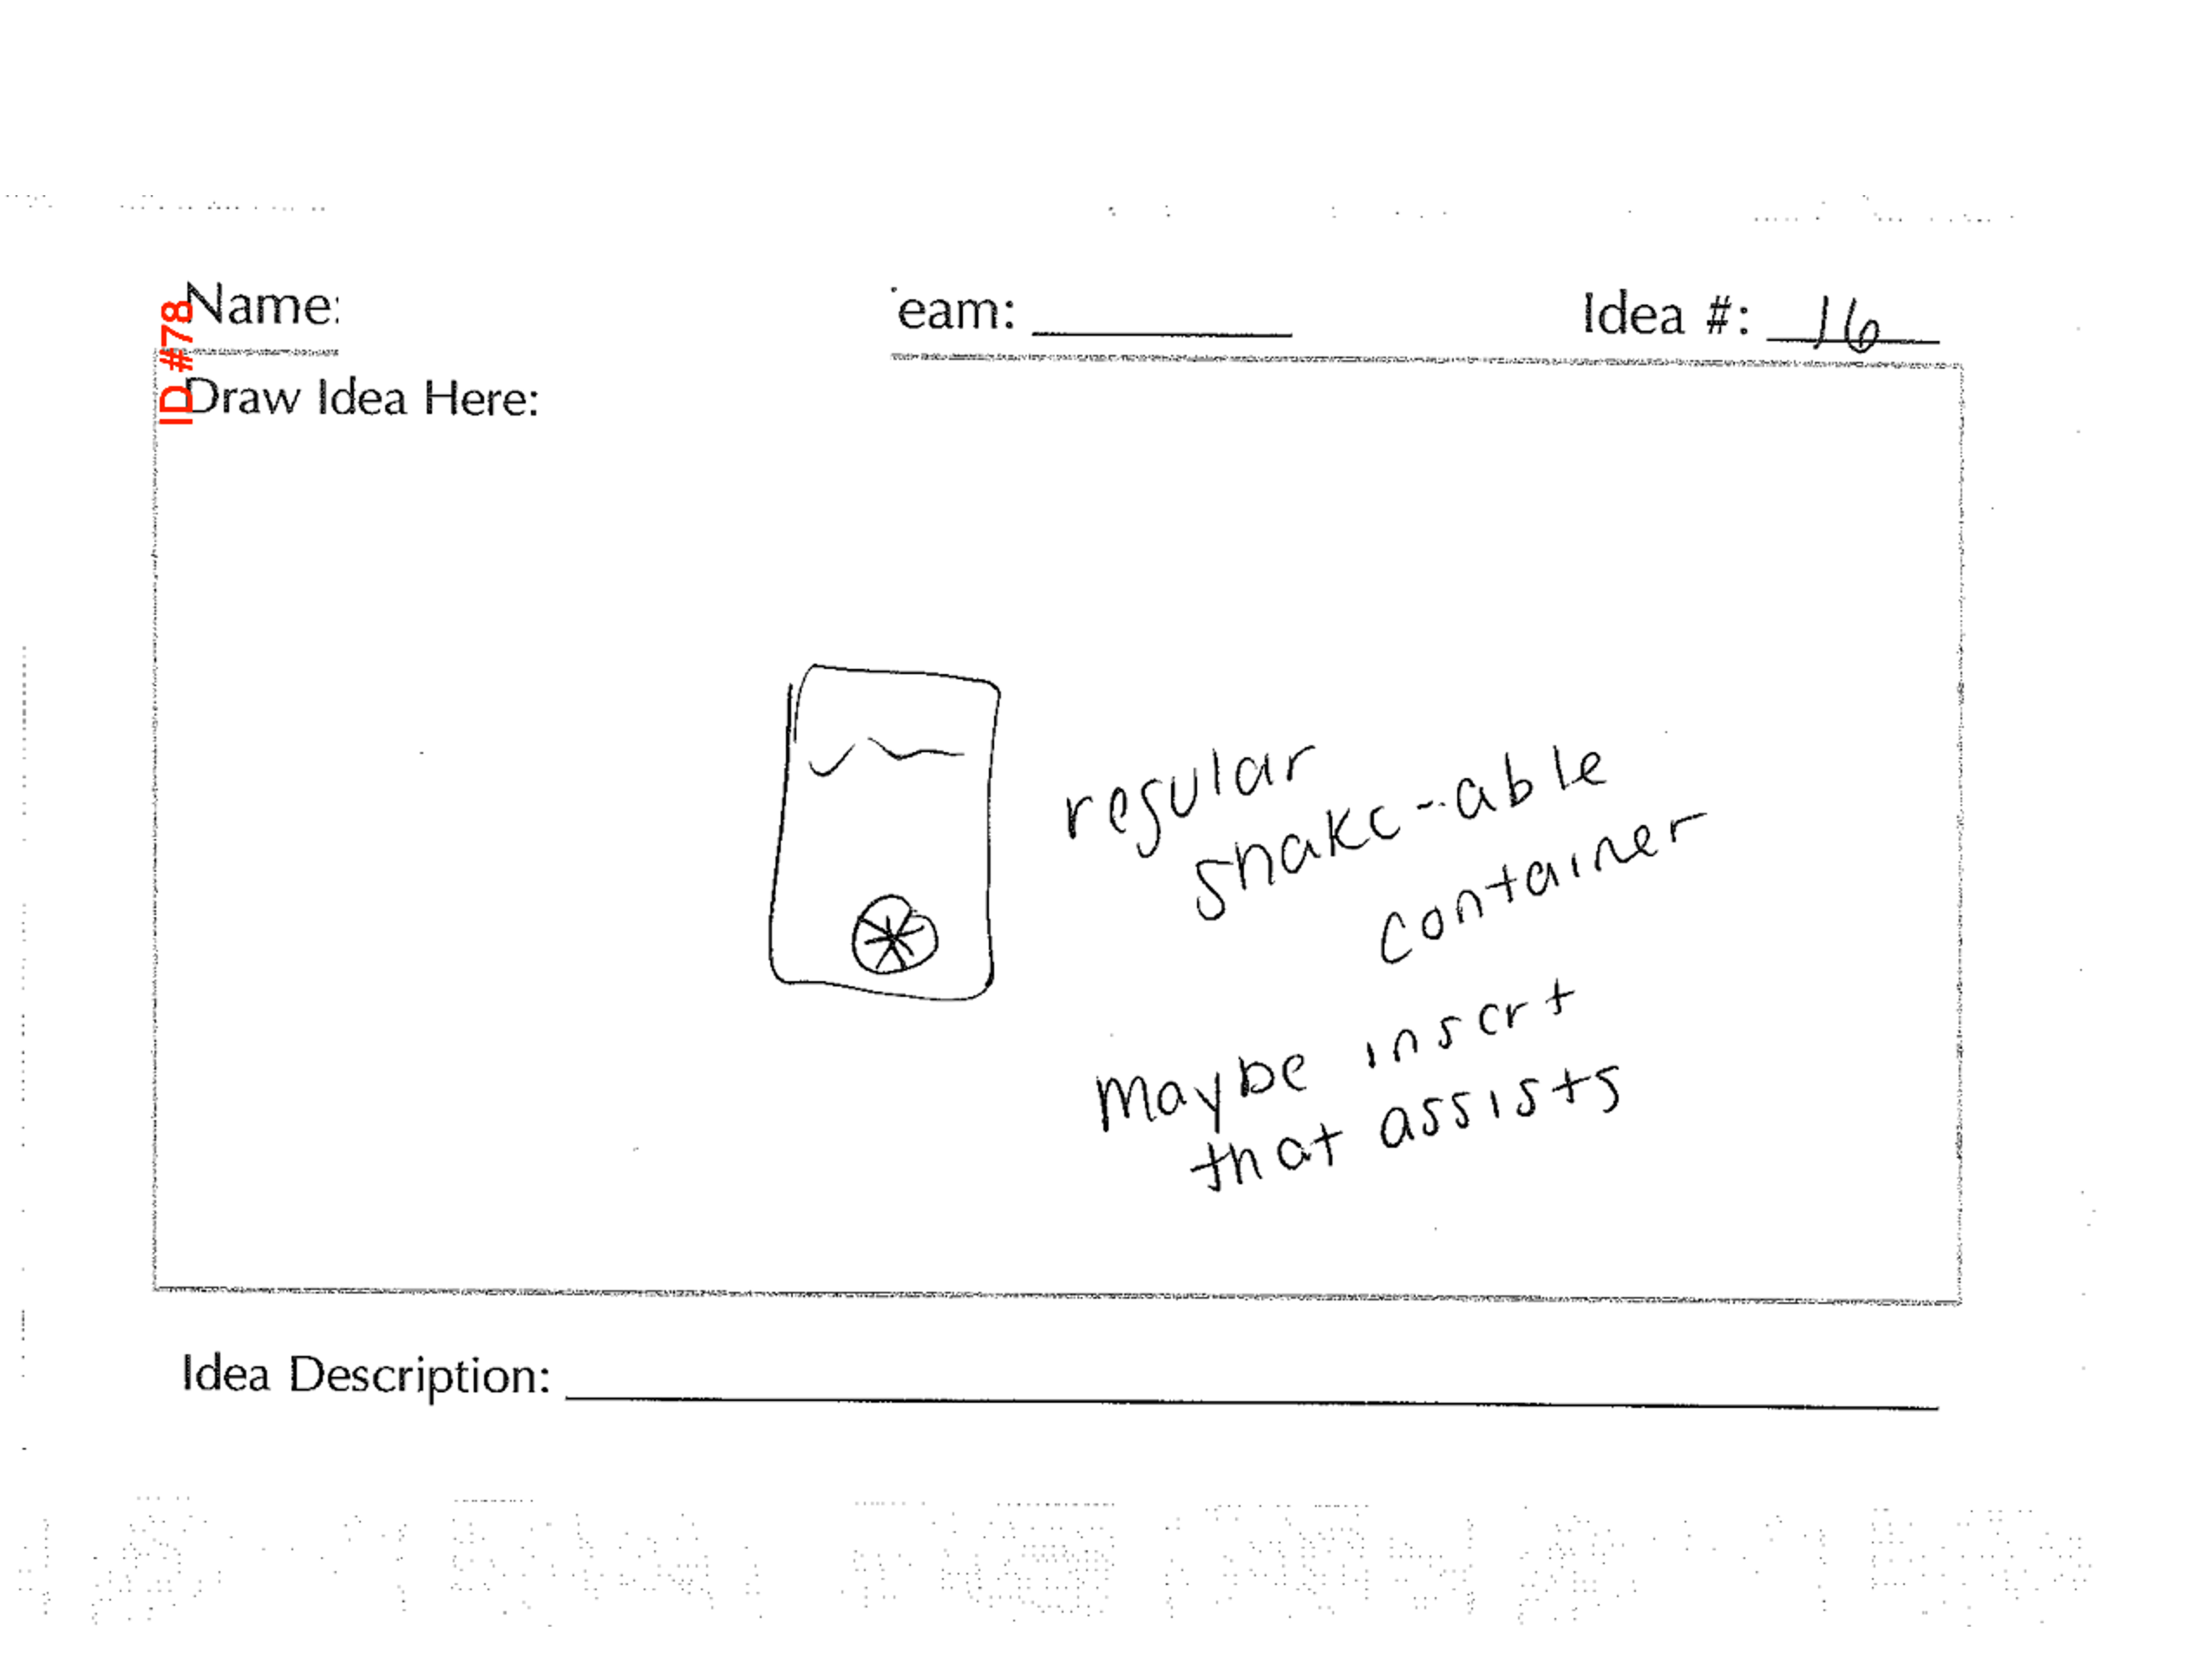 Name:
eam:
Idea #: 16
ID #78
Draw Idea Here:
regular
shake-able
container
maybe insert
that assists
Idea Description: